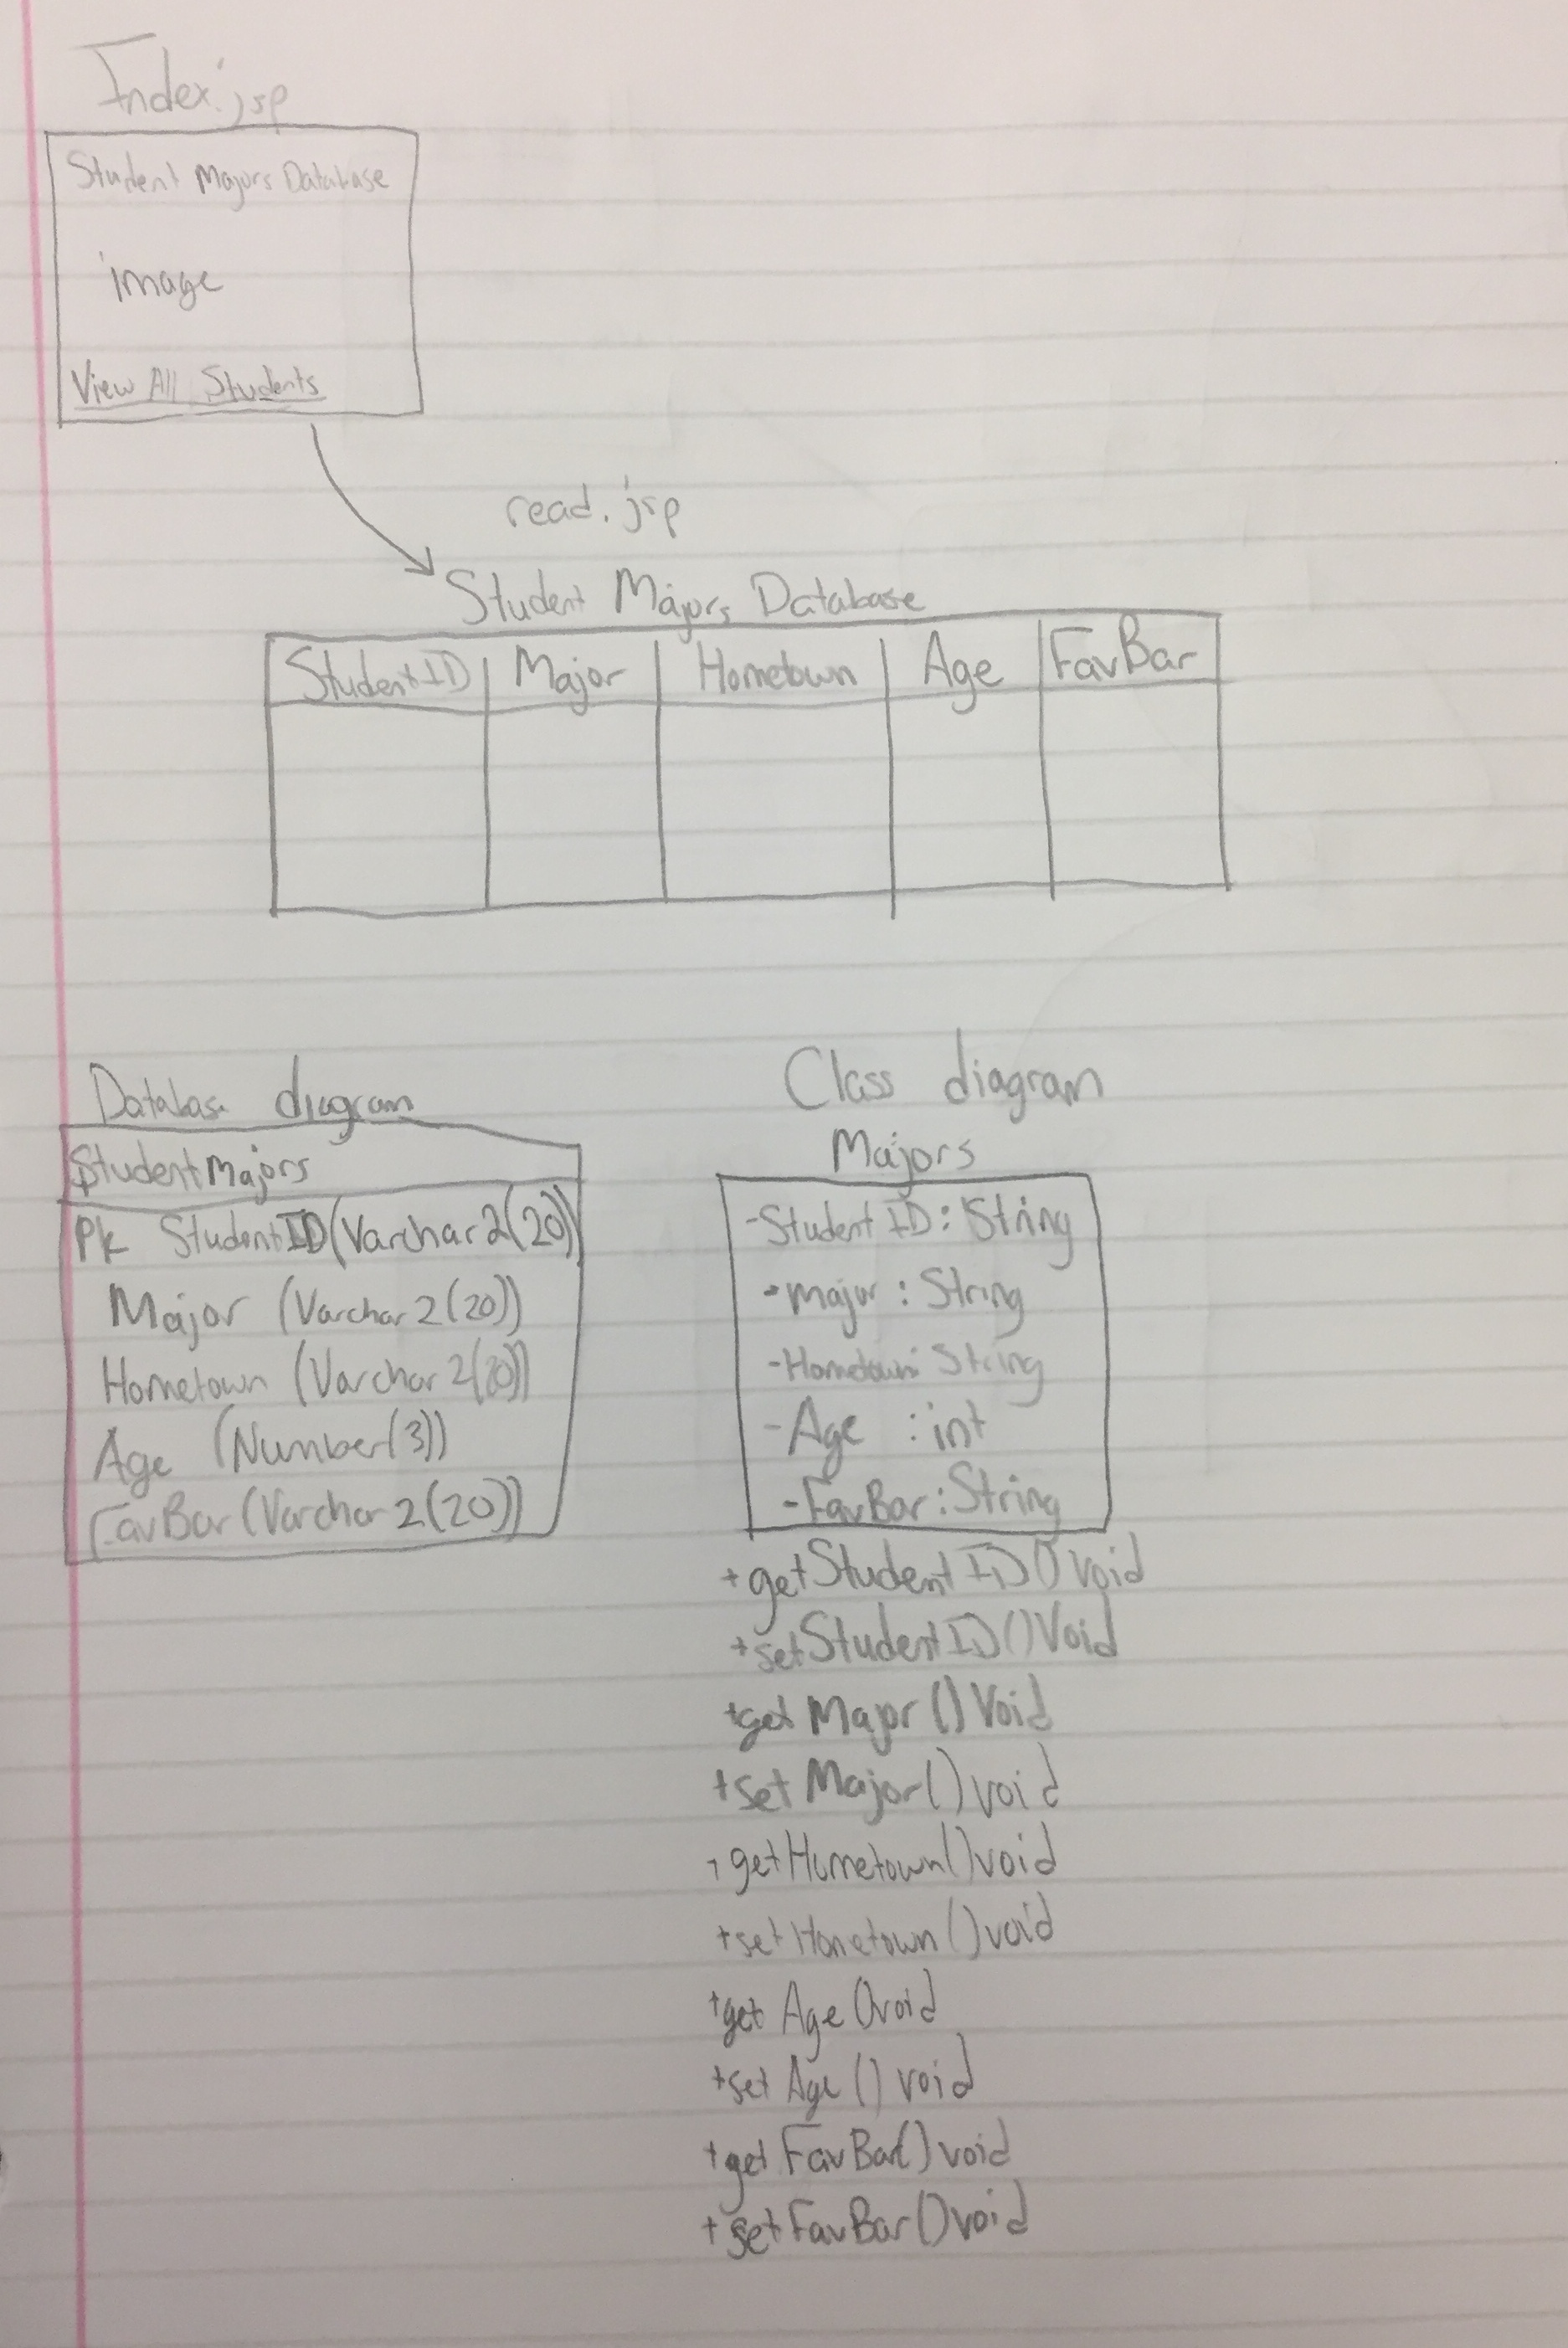 Index.jsp
Student Majors Database
image
View All Students
read.jsp
Student Majors Database
StudentID Major Hometown Age FavBar
Database diagram
StudentMajors
Pk StudentID(Varchar2(20))
Major (Varchar2(20))
Hometown (Varchar2(20))
Age (Number(3))
FavBar(Varchar2(20))
Class diagram
Majors
-StudentID: String
-major: String
-Hometown: String
-Age : int
-FavBar: String
+getStudentID() void
+setStudentID() Void
+get Major () Void
+set Major() void
+getHometown() void
+setHometown() void
+get Age () void
+set Age () void
+get FavBar() void
+setFavBar() void